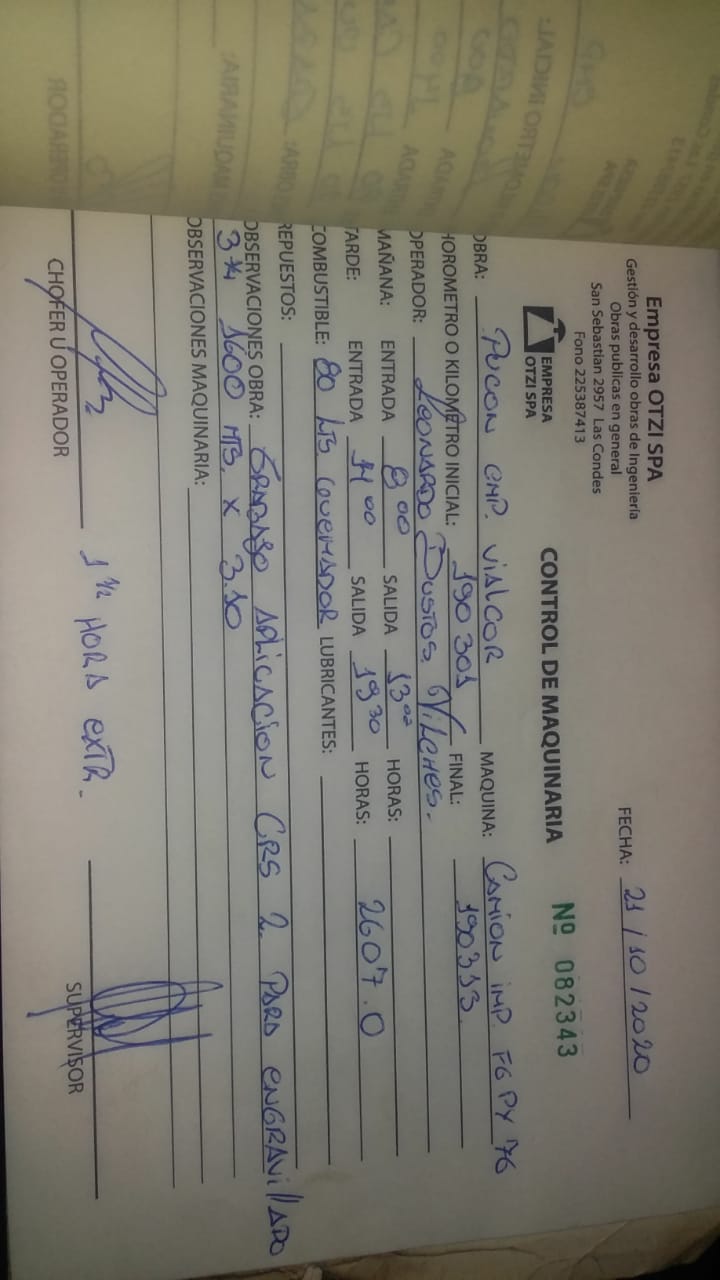 Empresa OTZI SPA
Gestión y desarrollo obras de Ingeniería
Obras publicas en general
San Sebastian 2957 Las Condes
Fono 225387413
FECHA: 21/10/2020
EMPRESA
OTZI SPA
CONTROL DE MAQUINARIA
Nº 082343
OBRA: PUCON CMP. VIALCOR MAQUINA: CAMION IMP. FG PY 76
HOROMETRO O KILOMETRO INICIAL: 190301 FINAL: 190313
OPERADOR: LEONARDO BUSTOS VILCHES.
MAÑANA: ENTRADA 8 00 SALIDA 13 00 HORAS:
TARDE: ENTRADA 14 00 SALIDA 19 30 HORAS: 2607.0
COMBUSTIBLE: 80 LTS QUEMADOR LUBRICANTES:
REPUESTOS:
OBSERVACIONES OBRA: TRABAJO APLICACION CRS 2. PARA ENGRAVILLADO
3 3/4 1600 MTS. X 3.10
OBSERVACIONES MAQUINARIA:
1 1/2 HORA EXTR.
CHOFER U OPERADOR SUPERVISOR